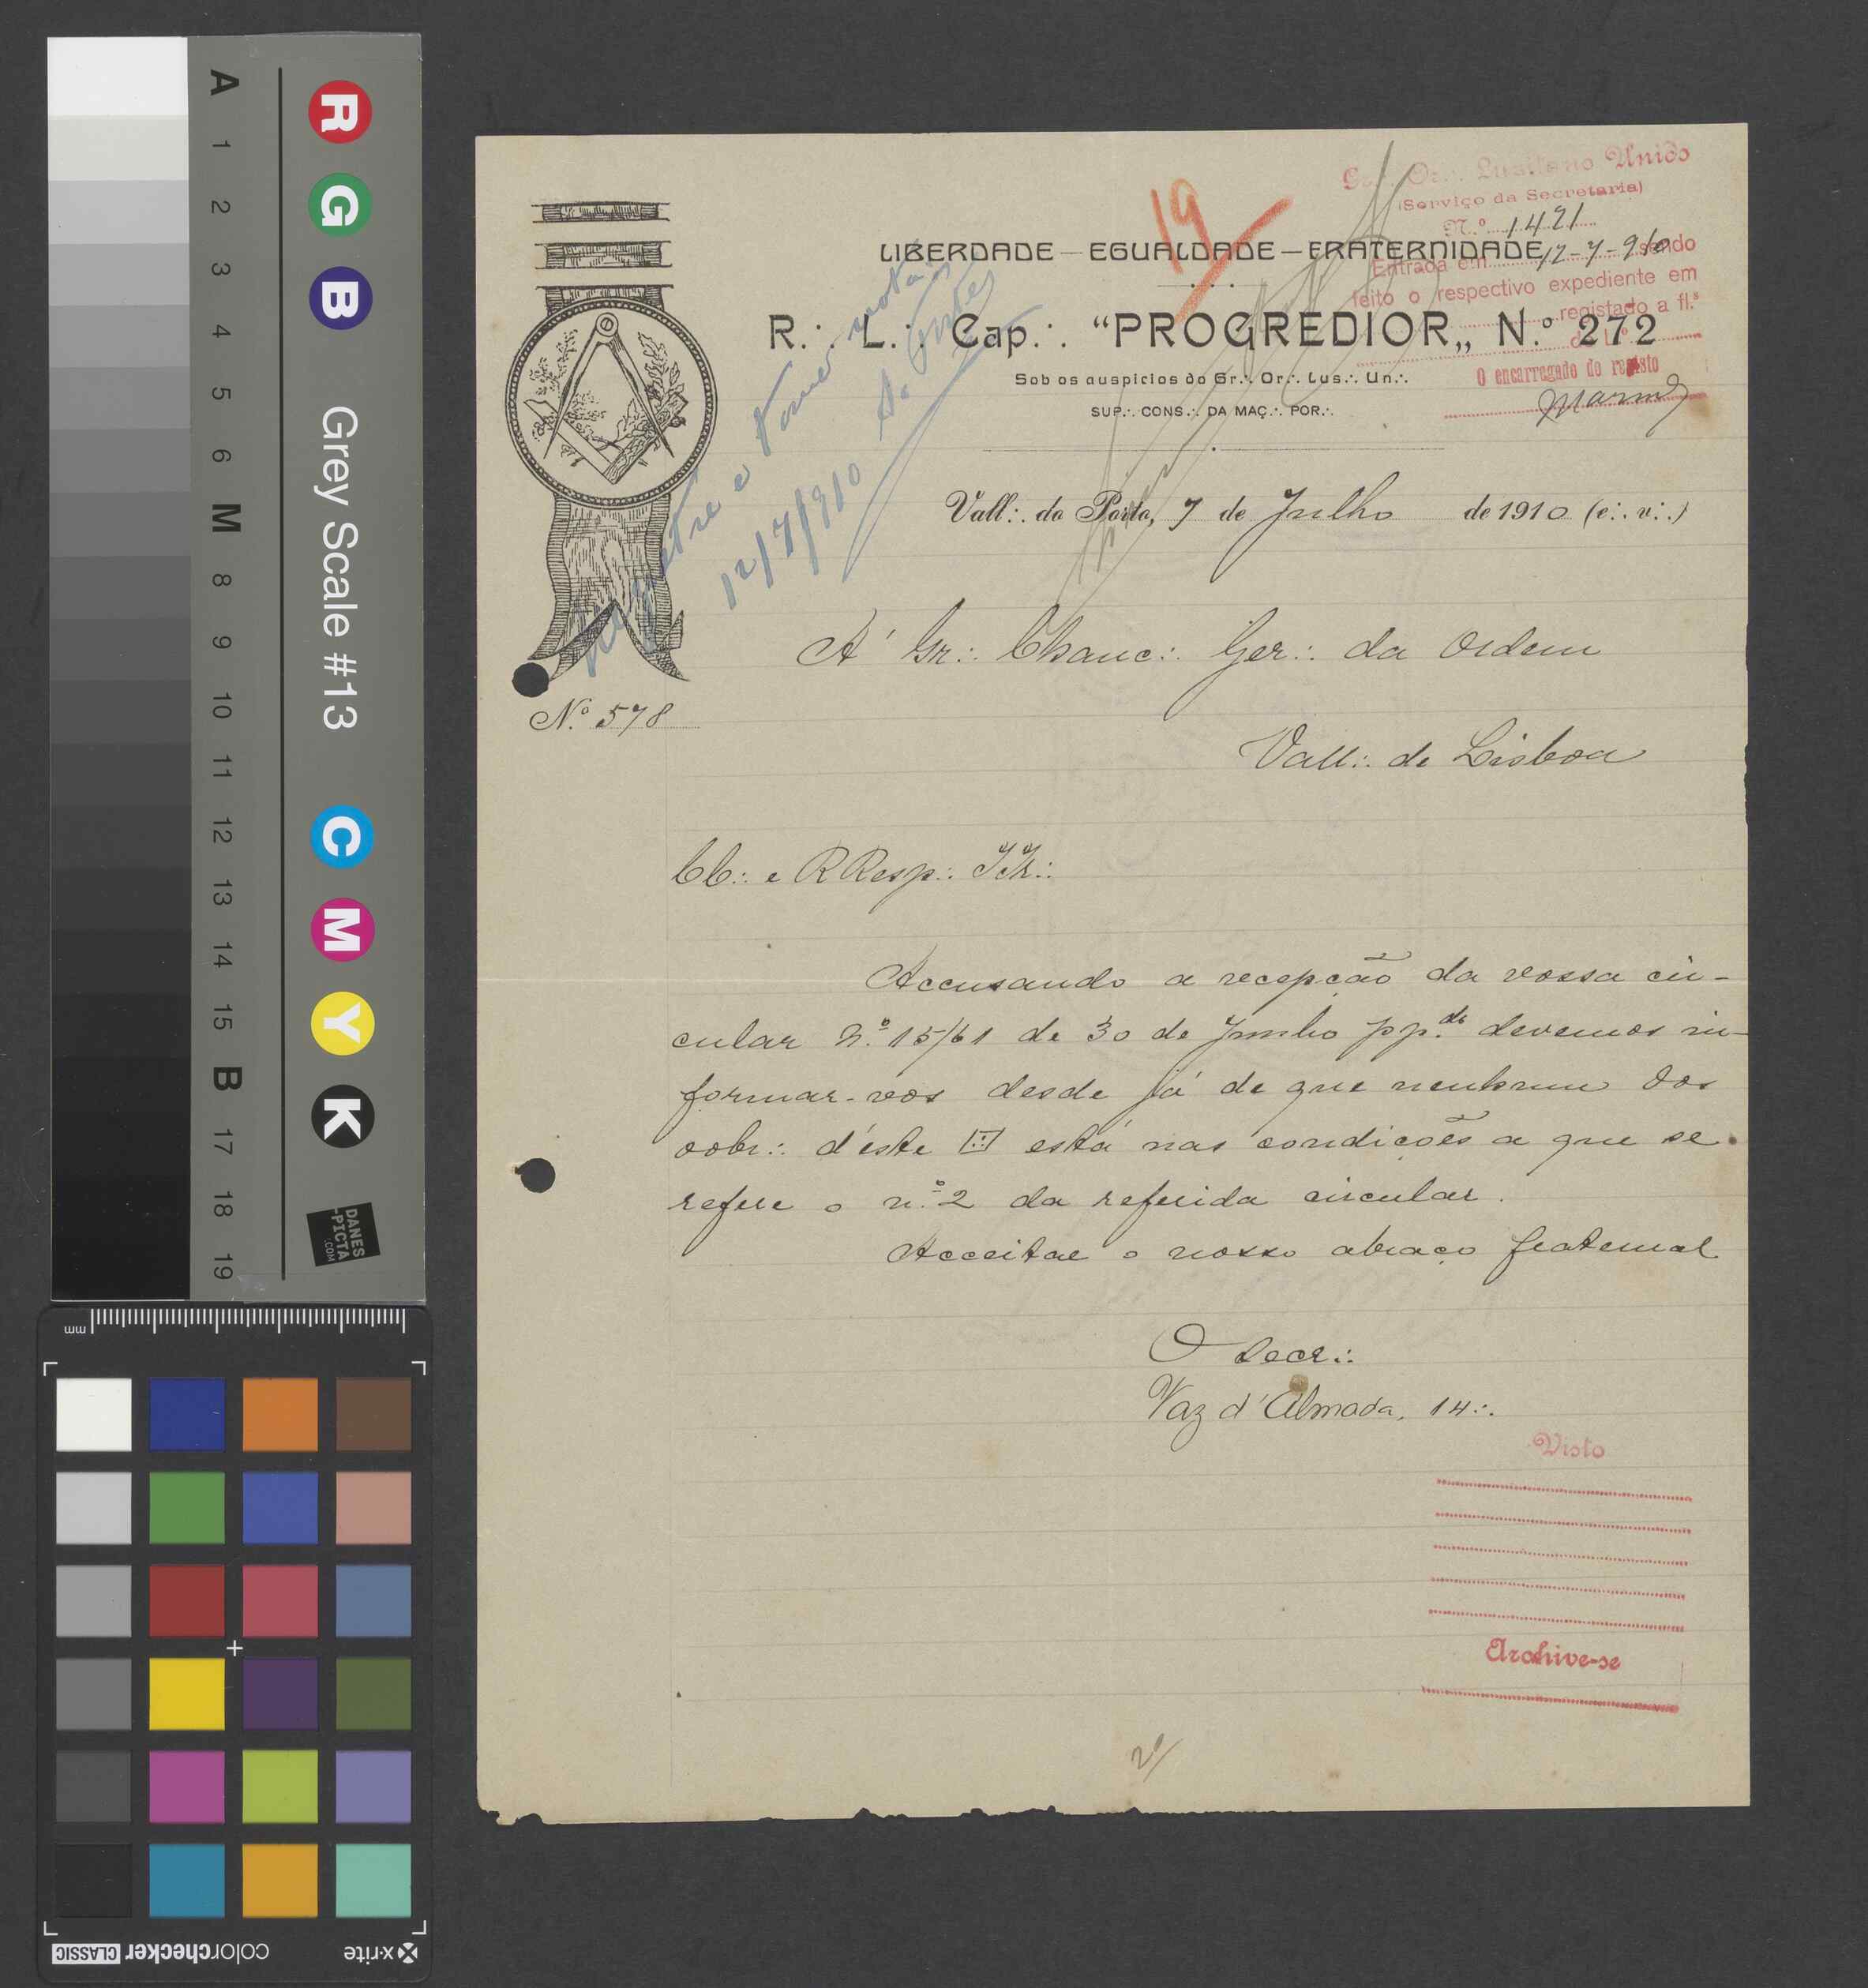 Gr.·. Or.·. Lusitano Unido
(Serviço da Secretaria)
N.º 1421
Entrada em 12-7-910 sendo
feito o respectivo expediente em
registado a fl.s
O encarregado do registo
19
LIBERDADE — EGUALDADE — FRATERNIDADE
R.·. L.·. Cap.·. "PROGREDIOR„ N.º 272
Sob os auspicios do Gr.·. Or.·. Lus.·. Un.·.
SUP.·. CONS.·. DA MAÇ.·. POR.·.
Registre e tome nota
12/7/910
Vall.·. do Porto, 7 de Julho de 1910 (e.·. v.·.)
A' Gr.·. Chanc.·. Ger.·. da Ordem
N.º 578
Vall.·. de Lisboa
CC.·. e RResp.·. IIr.·.
Accusando a recepção da vossa cir-
cular N.º 15/61 de 30 de Junho pp.do devemos in-
formar-vos desde já de que nenhum dos
oobr.·. d'éste está nas condições a que se
refere o n.º 2 da referida circular.
Acceitae o nosso abraço fraternal
O Secr.·.
Vaz d'Almada, 14.·.
Visto
Archive-se
A 1 2 3 4 5 6 M 8 9 10 11 12 13 14 15 B 17 18 19
R G B Grey Scale #13 C M Y K
DANES
-PICTA
.COM
mm
x-rite colorchecker CLASSIC